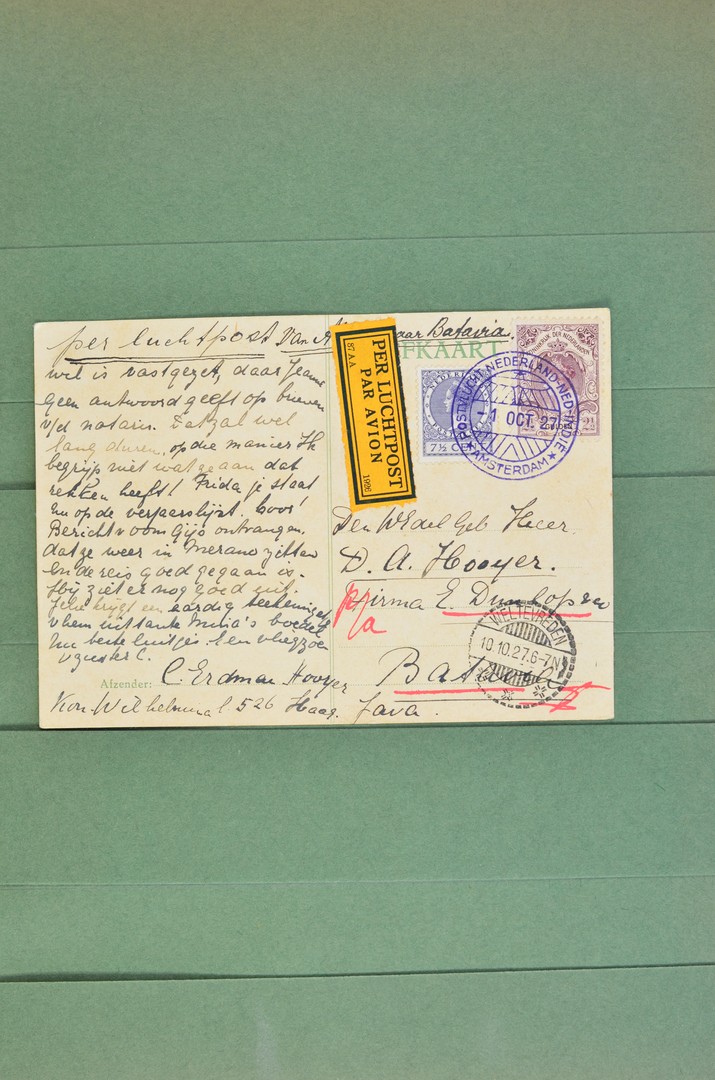 per luchtpost van A aar Batavia.
FKAART
PER LUCHTPOST
PAR AVION
87 AA
1926
7½ C
KONINKRIJK DER NEDERLANDEN
GULDEN
POSTVLUCHT NEDERLAND-NED-INDIË
-1 OCT. 27
AMSTERDAM
wil is vastgezet, daar Jeanne
geen antwoord geeft op brieven
v/d notaris. Dat zal wel
lang duren, op die manier. Ik
begrijp niet wat ze aan dat
rekken heeft! Frida je staat
nu op de verjaarslijst, hoor!
Bericht v oom Gijs ontvangen.
dat ze weer in Merano zitten
en de reis goed gegaan is.
Hij ziet er nog goed uit.
krijgt een aardig teekeningetje
v hem uit tante Mina's boedel
nu beste luitjes. Een vliegzoen
v zuster C.
Afzender: C. Erdman Hooyer
Kon. Wilhelmina l 526 Haag.
Den WEdel Geb Heer
D. A. Hooyer.
p/a
Firma E. Dunlop
Batavia
Java.
WELTEVREDEN
10.10.27.6-7N